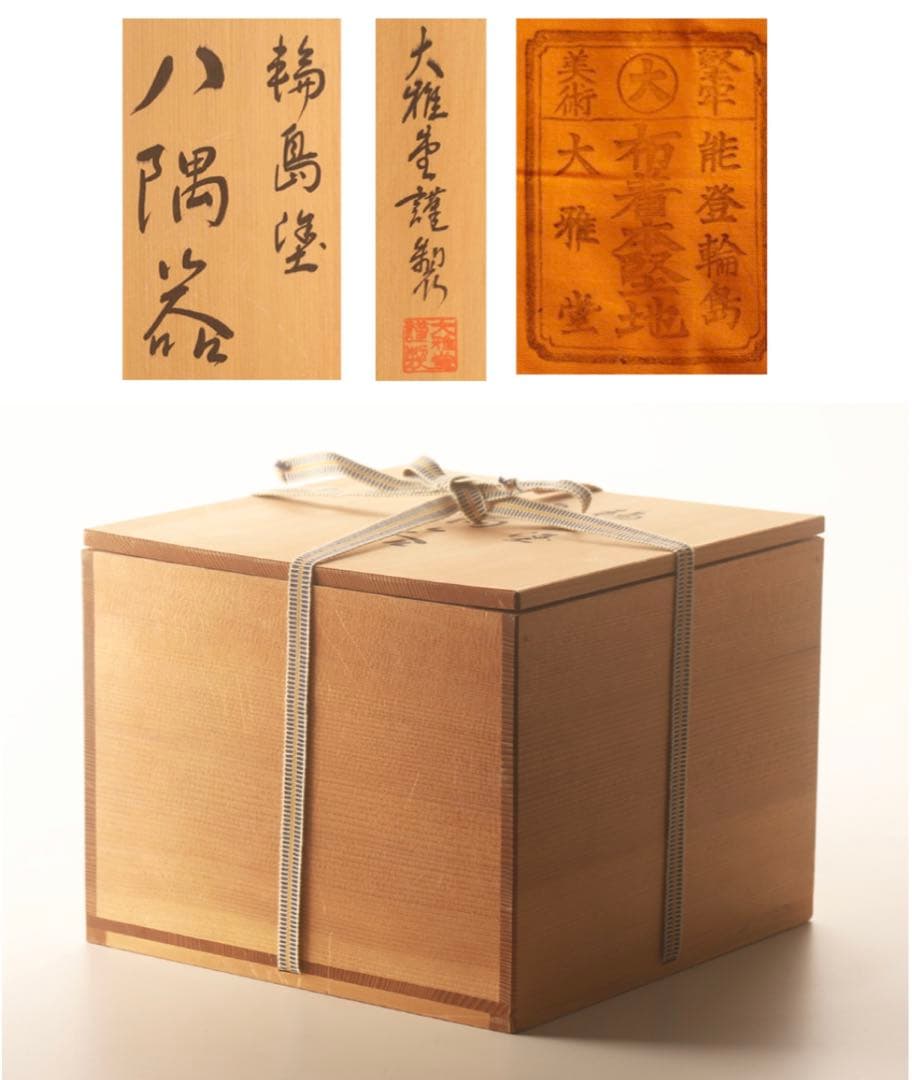 輪島塗
八隅器
大雅堂謹製
大雅堂
謹製
堅牢
能登輪島
大
布着本堅地
美術
大雅堂